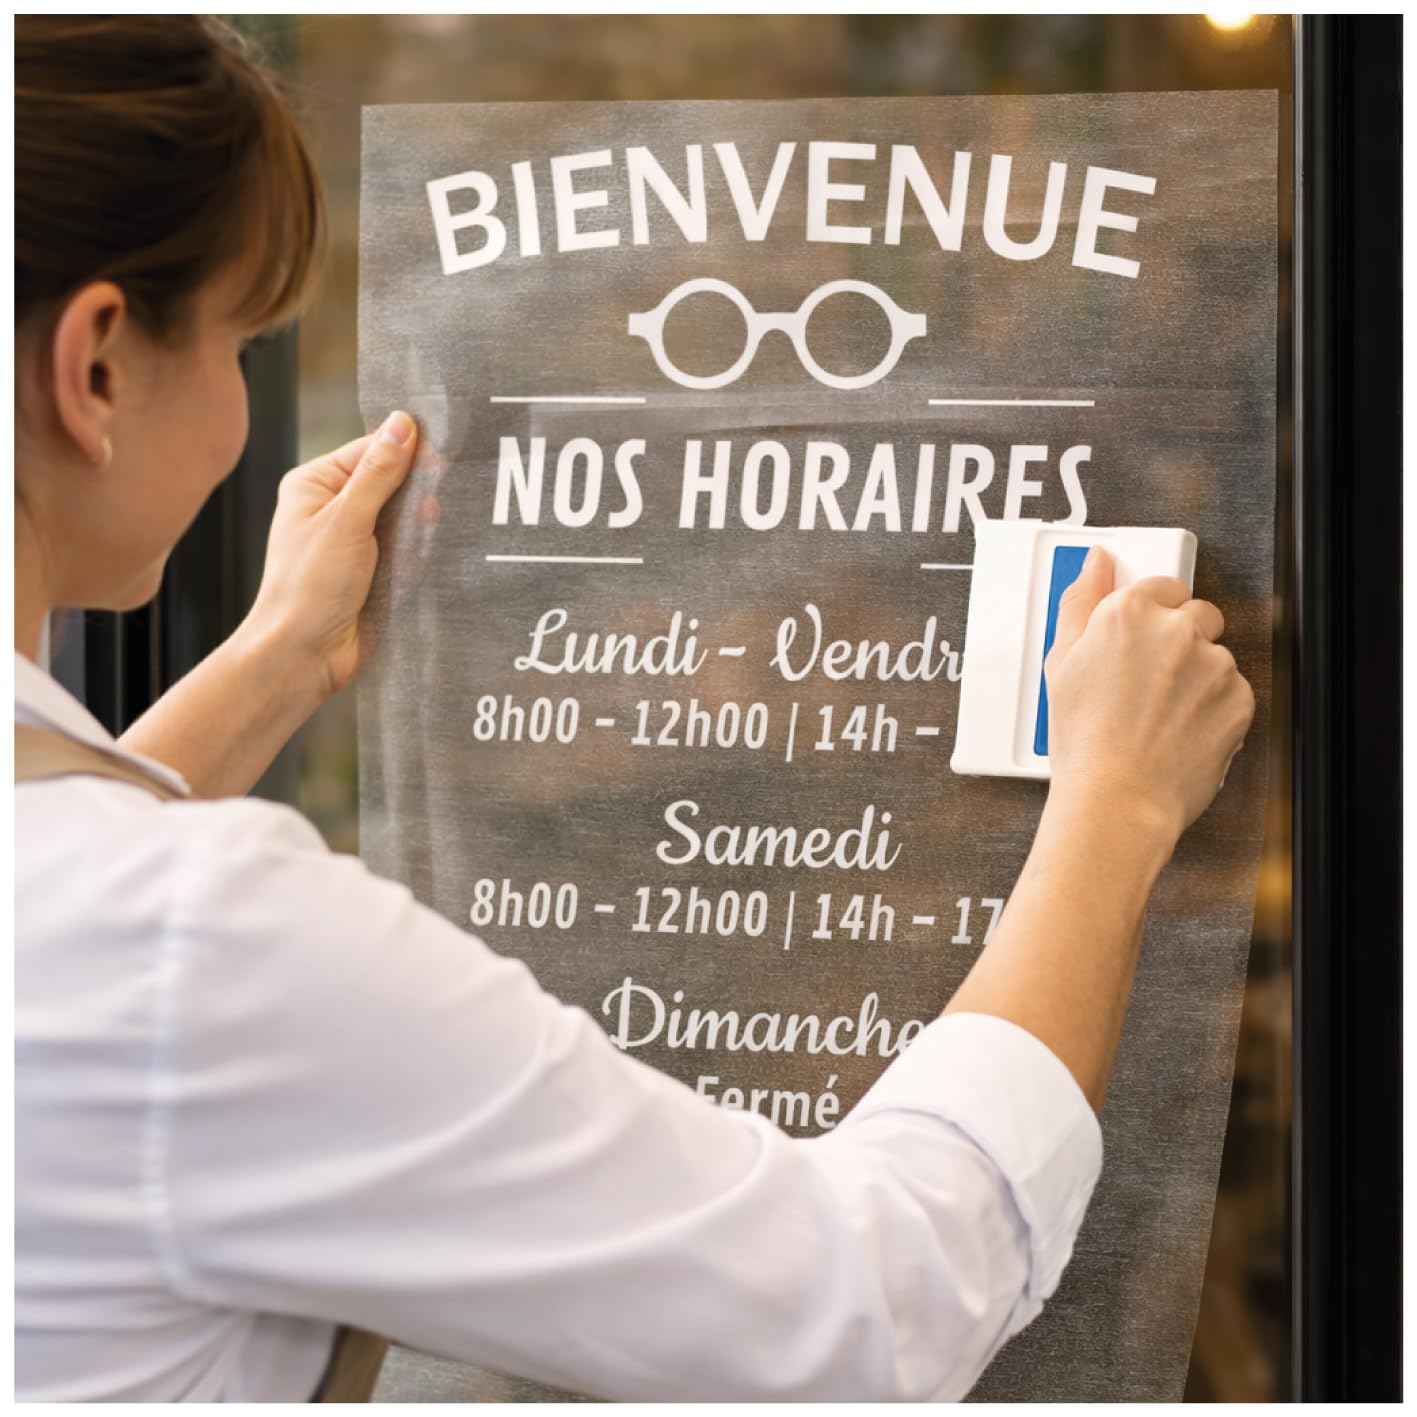 BIENVENUE
NOS HORAIRES
Lundi -
8h00 - 12h00 | 14h -
Samedi
8h00 - 12h00 | 14h -
Dimanche
Fermé